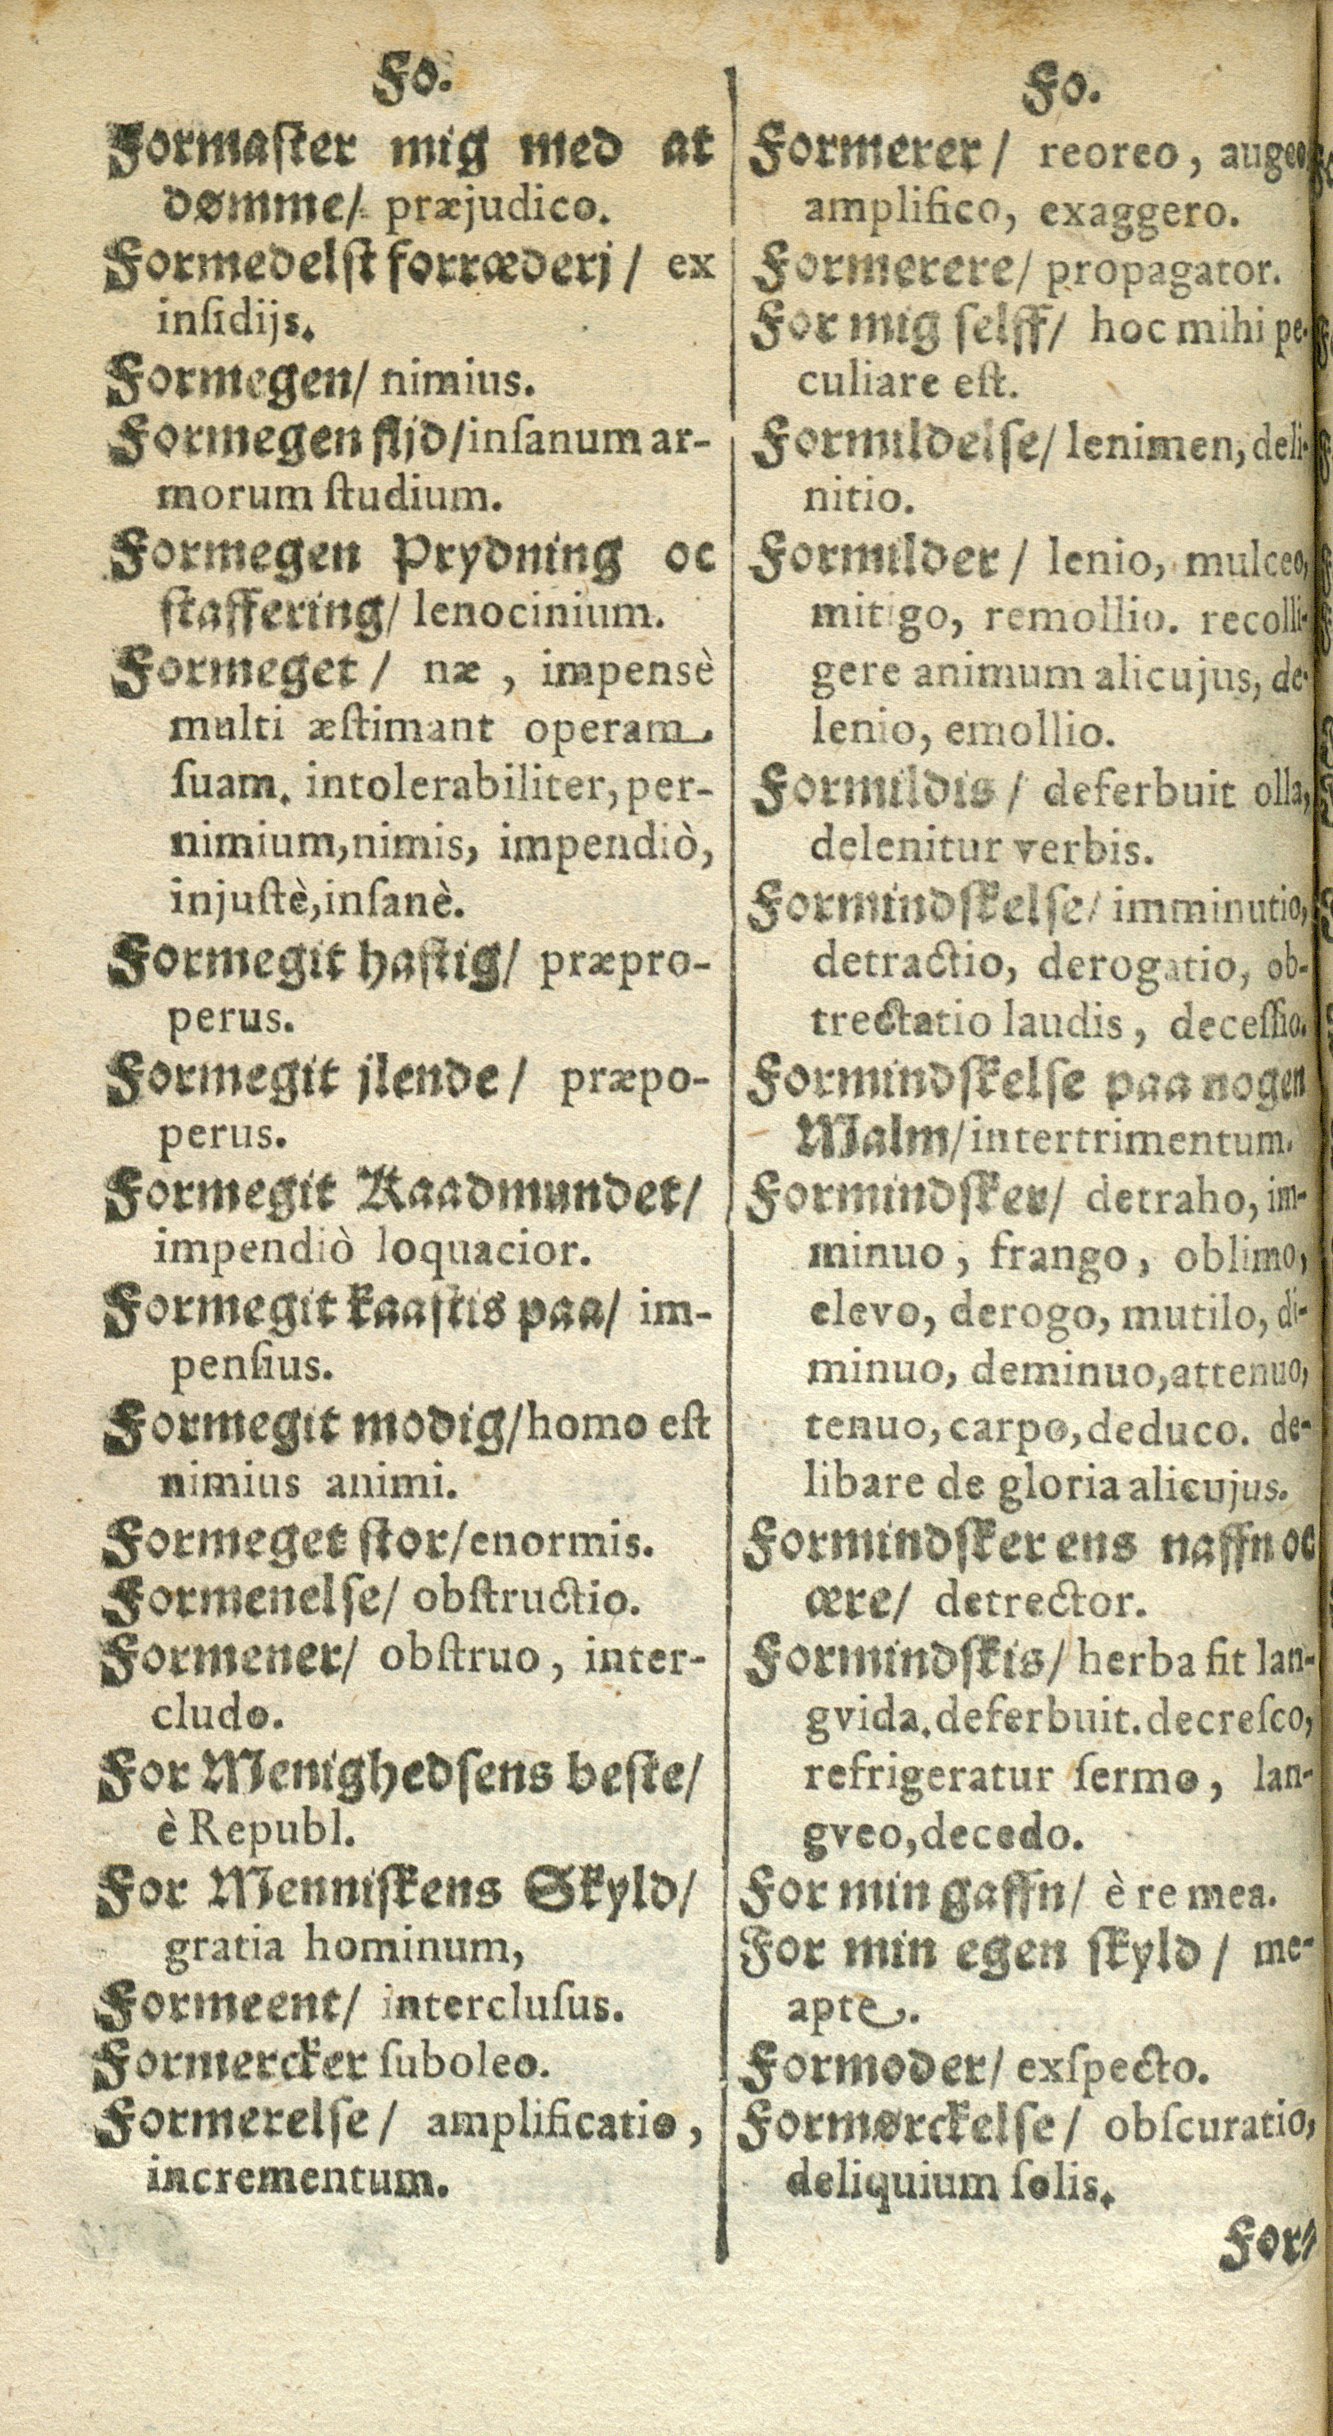 Fo.
Formaſter mig med at
dømme/ præjudico.
Formedelſt forræderj / ex
inſidijs.
Formegen/ nimius.
Formegen fljd/inſanum ar-
morum ſtudium.
Formegen Prydning oc
ſtaffering/ lenocinium.
Formeget / næ , impensè
multi æſtimant operam
ſuam. intolerabiliter, per-
nimium,nimis, impendiò,
injuſtè,inſanè.
Formegit haſtig/ præpro-
perus.
Formegit jlende/ præpo-
perus.
Formegit Raadmundet/
impendiò loquacior.
Formegit kaaſtis paa/ im-
penſius.
Formegit modig/homo eſt
nimius animi.
Formeget ſtor/enormis.
Formenelſe/ obſtructio.
Formener/ obſtruo, inter-
cludo.
For Menighedſens beſte/
è Republ.
For Menniſkens Skyld/
gratia hominum,
Formeent/ intercluſus.
Formercker ſuboleo.
Formerelſe/ amplificatio,
incrementum.
Fo.
Formerer/ reoreo, augeo,
amplifico, exaggero.
Formerere/ propagator.
For mig ſelff/ hoc mihi pe-
culiare eſt.
Formildelſe/ lenimen, deli-
nitio.
Formilder / lenio, mulceo,
mitigo, remollio. recolli-
gere animum alicujus, de-
lenio, emollio.
Formildis / deferbuit olla,
delenitur verbis.
Formindſkelſe/ imminutio,
detractio, derogatio, ob-
trectatio laudis, deceſſio.
Formindſkelſe paa nogen
Malm/intertrimentum.
Formindſker/ detraho, im-
minuo, frango, oblimo,
elevo, derogo, mutilo, di-
minuo, deminuo,attenuo,
tenuo, carpo, deduco. de-
libare de gloria alicujus.
Formindſker ens naffn oc
ære/ detrector.
Formindſkis/ herba fit lan-
gvida. deferbuit. decreſco,
refrigeratur ſermo, lan-
gveo, decedo.
For min gaffn/ è re mea.
For min egen ſkyld / me-
apte.
Formoder/ exſpecto.
Formørckelſe/ obſcuratio,
deliquium ſolis.
For-